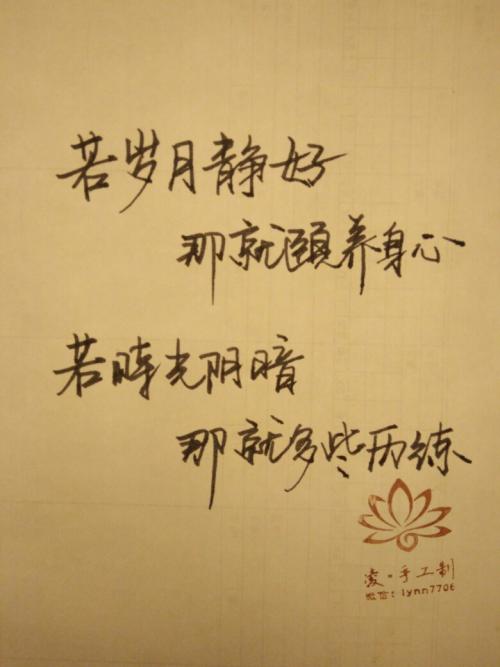 若岁月静好
那就颐养身心
若时光阴暗
那就多些历练
凌·手工制
微信：lynn7706